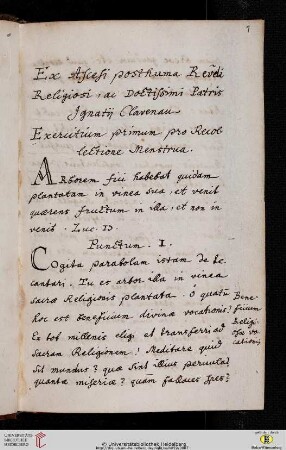 Ex Ascesi posthuma Revdi
Religiosi, ac Doctissimi Patris
Ignatij Clavenau
Exercitium primum pro Recol
lectione Menstrua.
ARborem fici habebat quidam
plantatam in vinea sua, et venit
quærens fructum in illa, et non in
venit. Luc. 13.
Punctum. I.
Cogita parabolam istam de te
cantari. Tu es arbor illa in vinea
sacræ Religionis plantata. O quatũ
hoc est beneficium divinæ vocationis!
Ex tot millenis eligi et transferri ad
Sacram Religionem! Meditare quid
sit mundus? quæ sint illius pericula?
quantæ miseriæ? quam fallaces spes?
Bene
ficium
Religio
sæ vo
cationis
UNIVERSITÄTS-
BIBLIOTHEK
HEIDELBERG
© Universitätsbibliothek Heidelberg